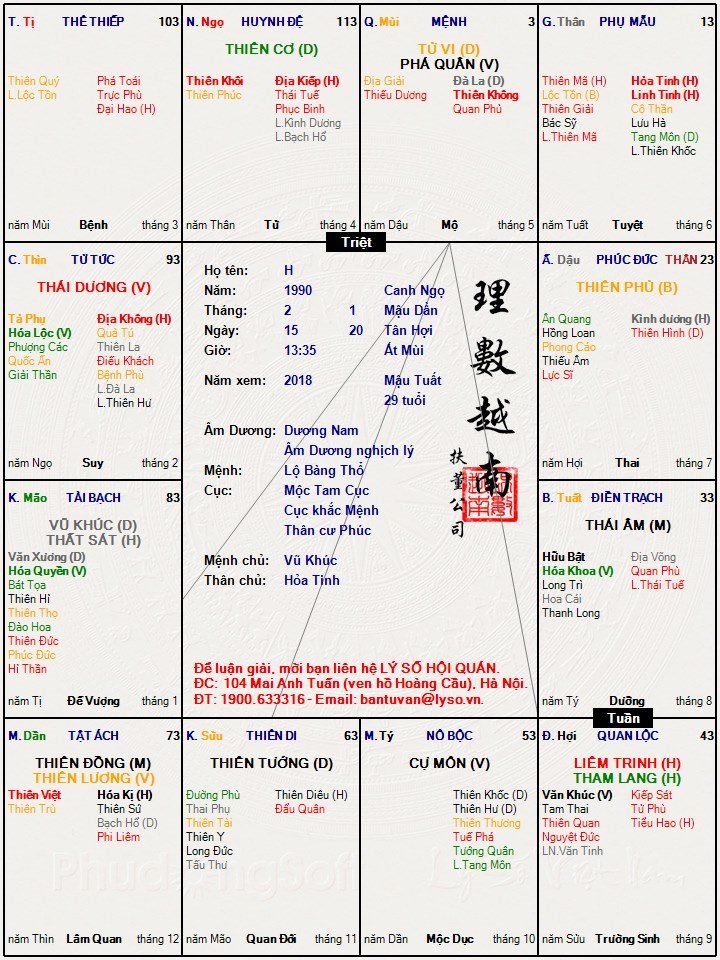 T. Tị THÊ THIẾP 103
Thiên Quý Phá Toái
L.Lộc Tồn Trực Phù
Đại Hao (H)
năm Mùi Bệnh tháng 3
N. Ngọ HUYNH ĐỆ 113
THIÊN CƠ (D)
Thiên Khôi Địa Kiếp (H)
Thiên Phúc Thái Tuế
Phục Binh
L.Kình Dương
L.Bạch Hổ
năm Thân Tử tháng 4
Q. Mùi MỆNH 3
TỬ VI (D)
PHÁ QUÂN (V)
Địa Giải Đà La (D)
Thiếu Dương Thiên Không
Quan Phủ
năm Dậu Mộ tháng 5
G. Thân PHỤ MẪU 13
Thiên Mã (H) Hỏa Tinh (H)
Lộc Tồn (B) Linh Tinh (H)
Thiên Giải Cô Thần
Bác Sỹ Lưu Hà
L.Thiên Mã Tang Môn (D)
L.Thiên Khốc
năm Tuất Tuyệt tháng 6
Triệt
C. Thìn TỬ TỨC 93
THÁI DƯƠNG (V)
Tả Phụ Địa Không (H)
Hóa Lộc (V) Quả Tú
Phượng Các Thiên La
Quốc Ấn Điếu Khách
Giải Thần Bệnh Phù
L.Đà La
L.Thiên Hư
năm Ngọ Suy tháng 2
Họ tên: H
Năm: 1990 Canh Ngọ
Tháng: 2 1 Mậu Dần
Ngày: 15 20 Tân Hợi
Giờ: 13:35 Ất Mùi
Năm xem: 2018 Mậu Tuất
29 tuổi
Âm Dương: Dương Nam
Âm Dương nghịch lý
Mệnh: Lộ Bàng Thổ
Cục: Mộc Tam Cục
Cục khắc Mệnh
Thân cư Phúc
Mệnh chủ: Vũ Khúc
Thân chủ: Hỏa Tinh
理數越南
扶董公司
Để luận giải, mời bạn liên hệ LÝ SỐ HỘI QUÁN.
ĐC: 104 Mai Anh Tuấn (ven hồ Hoàng Cầu), Hà Nội.
ĐT: 1900.633316 - Email: bantuvan@lyso.vn.
Ấ. Dậu PHÚC ĐỨC THÂN 23
THIÊN PHỦ (B)
Ân Quang Kình dương (H)
Hồng Loan Thiên Hình (D)
Phong Cáo
Thiếu Âm
Lực Sĩ
năm Hợi Thai tháng 7
K. Mão TÀI BẠCH 83
VŨ KHÚC (D)
THẤT SÁT (H)
Văn Xương (D)
Hóa Quyền (V)
Bát Tọa
Thiên Hỉ
Thiên Thọ
Đào Hoa
Thiên Đức
Phúc Đức
Hỉ Thần
năm Tị Đế Vượng tháng 1
B. Tuất ĐIỀN TRẠCH 33
THÁI ÂM (M)
Hữu Bật Địa Võng
Hóa Khoa (V) Quan Phù
Long Trì L.Thái Tuế
Hoa Cái
Thanh Long
năm Tý Dưỡng tháng 8
Tuần
M. Dần TẬT ÁCH 73
THIÊN ĐỒNG (M)
THIÊN LƯƠNG (V)
Thiên Việt Hóa Kị (H)
Thiên Trù Thiên Sứ
Bạch Hổ (D)
Phi Liêm
năm Thìn Lâm Quan tháng 12
K. Sửu THIÊN DI 63
THIÊN TƯỚNG (D)
Đường Phù Thiên Diêu (H)
Thai Phụ Đẩu Quân
Thiên Tài
Thiên Y
Long Đức
Tấu Thư
năm Mão Quan Đới tháng 11
M. Tý NÔ BỘC 53
CỰ MÔN (V)
Thiên Khốc (D)
Thiên Hư (D)
Thiên Thương
Tuế Phá
Tướng Quân
L.Tang Môn
năm Dần Mộc Dục tháng 10
Đ. Hợi QUAN LỘC 43
LIÊM TRINH (H)
THAM LANG (H)
Văn Khúc (V) Kiếp Sát
Tam Thai Tử Phù
Thiên Quan Tiểu Hao (H)
Nguyệt Đức
LN.Văn Tinh
năm Sửu Trường Sinh tháng 9